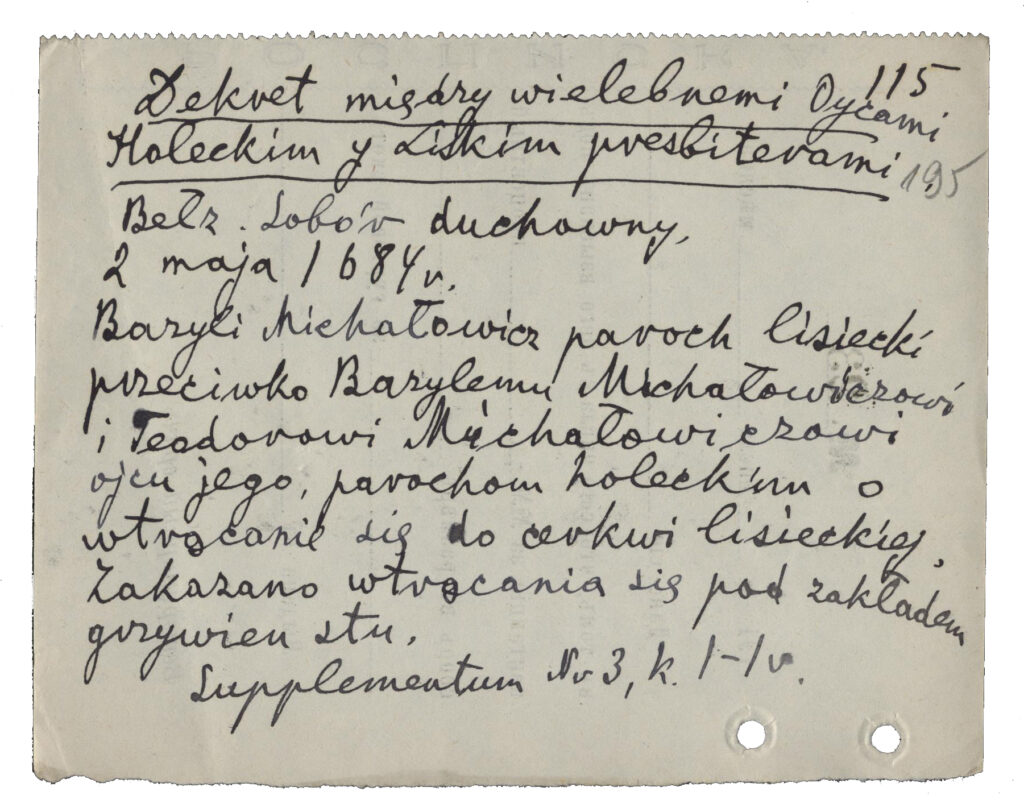 115
Dekret między wielebnemi Oycami
Hołeckim y Liskim presbiterami
195
Bełz. Sobór duchowny,
2 maja 1684 r.
Bazyli Michałowicz paroch lisiecki
przeciwko Bazylemu Michałowiczowi
i Teodorowi Michałowiczowi
ojcu jego, parochom hołeckim o
wtrącanie się do cerkwi lisieckiej.
Zakazano wtrącania się pod zakładem
grzywien stu.
Supplementum Nr 3, k. 1-1v.